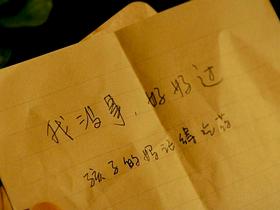 我没事，好好过
孩子的妈记得吃药